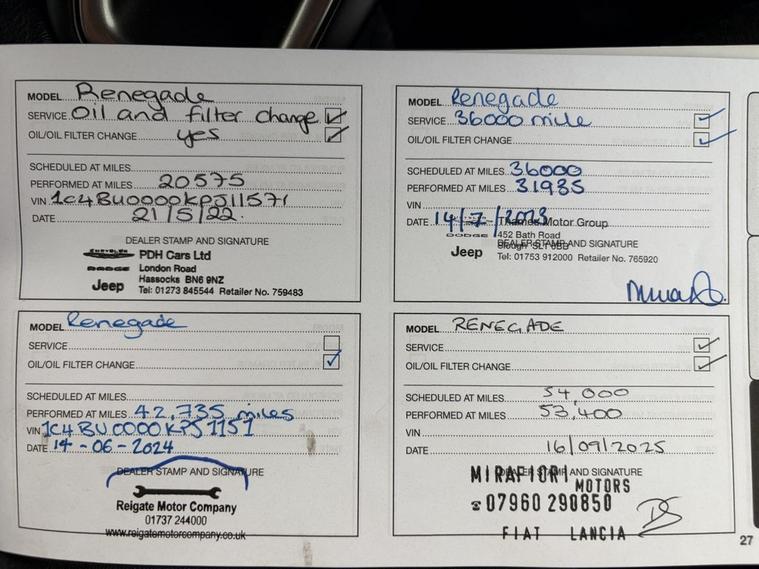 MODEL Renegade
SERVICE Oil and filter change
OIL/OIL FILTER CHANGE yes
SCHEDULED AT MILES
PERFORMED AT MILES 20575
VIN 1C4BU0000KPJ11571
DATE 21/5/22.
DEALER STAMP AND SIGNATURE
CHRYSLER
PDH Cars Ltd
DODGE
London Road
Hassocks BN6 9NZ
Jeep
Tel: 01273 845544 Retailer No. 759483
MODEL Renegade
SERVICE 36000 mile
OIL/OIL FILTER CHANGE
SCHEDULED AT MILES 36000
PERFORMED AT MILES 31985
VIN
DATE 14/7/2023
Thames Motor Group
DODGE
452 Bath Road
DEALER STAMP AND SIGNATURE
Slough SL1 6BB
Jeep
Tel: 01753 912000 Retailer No. 765920
MODEL Renegade
SERVICE
OIL/OIL FILTER CHANGE
SCHEDULED AT MILES
PERFORMED AT MILES 42,735 miles
VIN 1C4BU0000KPJ1151
DATE 14-06-2024
DEALER STAMP AND SIGNATURE
Reigate Motor Company
01737 244000
www.reigatemotorcompany.co.uk
MODEL RENEGADE
SERVICE
OIL/OIL FILTER CHANGE
SCHEDULED AT MILES 54,000
PERFORMED AT MILES 53,400
VIN
DATE 16/09/2025
DEALER STAMP AND SIGNATURE
MIRAFIORI
MOTORS
☎07960 290850
FIAT LANCIA
27